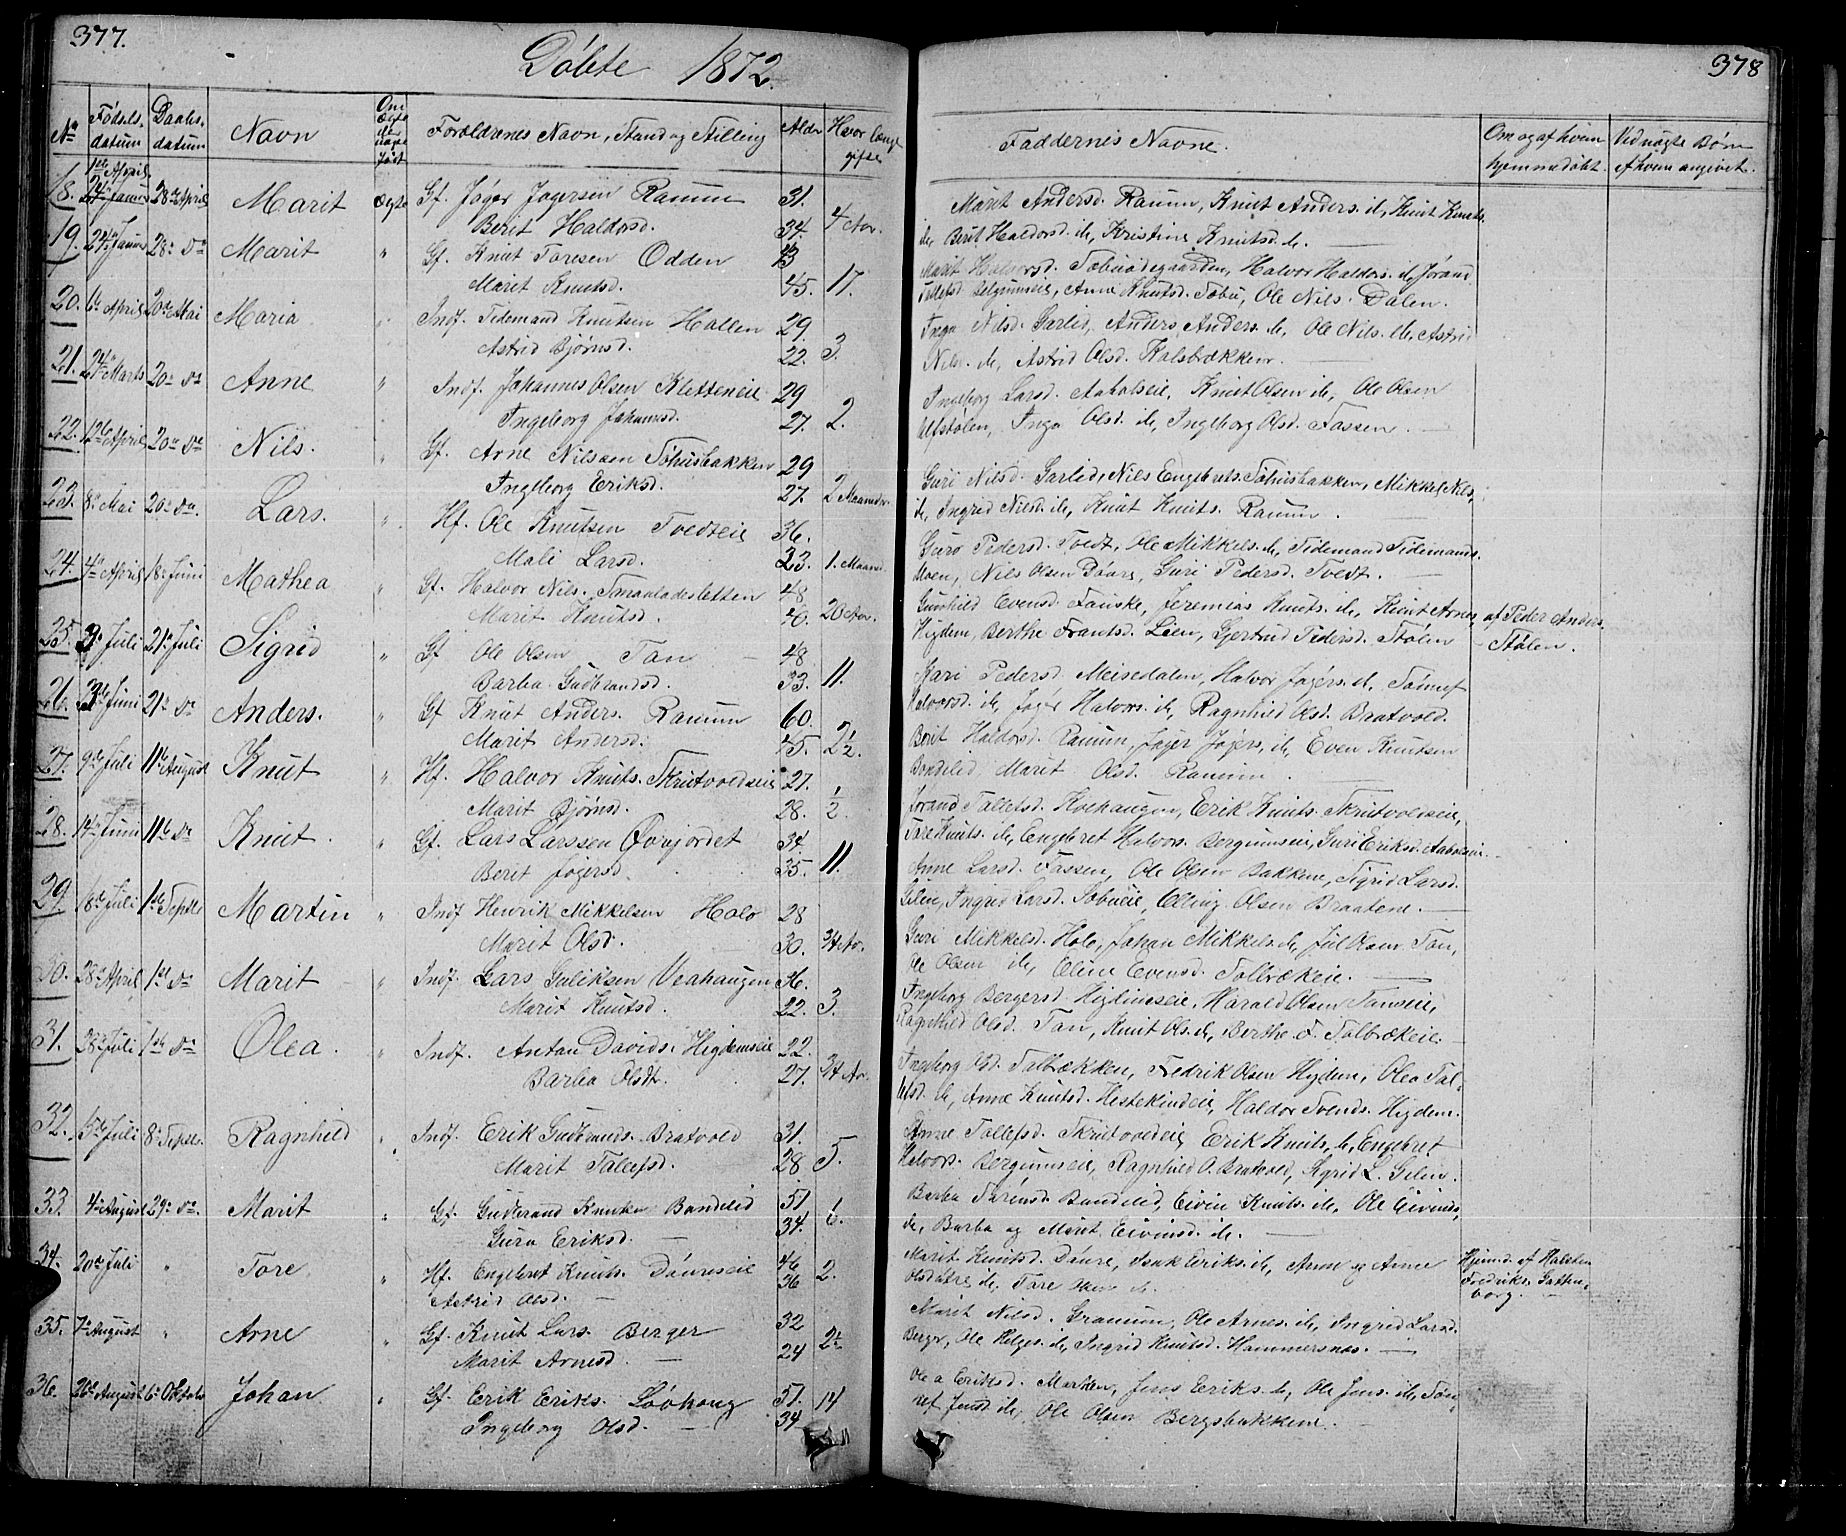 377.
Döbte 1872.
No Fødsels-datum Daabs-datum Navn Om Ægte eller uægte født Forældrenes Navn, Stand og Stilling Alder Hvor længe gifte
18. 28de April Marit Ægte Gf. Jøger Jøgersen Ranum 31.
Berit Haldorsd. 34. 4 Aar.
19. 28de do Marit " Gf. Knut Toresen Odden 43
Marit Knutsd. 45. 17.
20. 6te April 20de Mai Maria " Indf. Tidemand Knutsen Hallen 29
Astrid Bjørnsd. 22. 3.
21. 24de Marts 20de do Anne " Indf. Johannes Olsen Kletteneie 29
Ingeborg Johannesd. 27. 2.
22. April 20de do Nils. " Gf. Arne Nilssen Tohusbakken 29
Ingeborg Eriksd. 27. 2 Maaneder
23. 8de Mai 20de do. Lars. " Hf. Ole Knutsen Tvedteie 36.
Mali Larsd. 23. 1. Maaned
24. 4de April 18de Juni Mathea " Gf. Halvor Nils. Smaaladesletten 48
Marit Knutsd. 40. 20 Aar.
25. 3de Juli 21de Juli Sigrid " Gf Ole Olsen Tan 48.
Barbo Gudbrandsd. 33. 11.
26. 3de Juni 21de do Anders. " Gf Knut Anders. Ranum 60.
Marit Andersd. 45. 2½.
27. 9de Juli 11te August Knut " Hf. Halvor Knuts. Skrutvoldseie 27.
Marit Bjørnsd. 28. ½.
28. 14de Juni 11te do Knut. " Gf. Lars Larssen Øvrejordet 34.
Berit Jøgersd. 35. 11.
29. 18de Juli 1ste Septbr Martin " Indf Henrik Mikkelsen Holo 28
Marit Olsd. 30. 3/4 Ar.
30. 28de April 1ste do Marit " Indf. Lars Guliksen Veahaugen 26.
Marit Knutsd. 22. 3.
31. 28de Juli 1ste do Olea. " Indf. Anton Davids. Higdemseie 22.
Barbo Olsdt. 27. 3/4 Ar.
32. 5te Juli 8de Septbr. Ragnhild " Indf. Erik Gudbrands. Bratvold 31.
Marit Tallefsd. 28 5.
33. 4de August 29de do. Marit " Gf. Gudbrand Knutsen Bandelid 51
Guro Eriksd. 34. 6.
34. 20de Juli " Tore " Hf. Engebret Knuts. Döureseie 46
Astrid Olsd. 36 2.
35. 7de August " Arne " Gf. Knut Lars. Berger 32
Marit Arnesd. 24 2
36. 26de August 6te Oktober Johan " Gf. Erik Eriks. Lövhaug 51. 14
Ingeborg Olsd. 34
378
Faddernes Navne. Om og af hvem hjemmedøbt. Ved uægte Børn af hvem angivet.
Marit Andersd. Ranum, Knut Anders. ib, Knut Knuts.
ib, Berit Haldorsd. ib, Kristine Knutsd. ib.
Marit Halvorsd. Halvor Haldors. ib, Jørand
Tollefsd. Anne Knutsd. Tobu, Ole Nils. Dalen.
Inga Nilsd. Garlid, Anders Anders. ib, Ole Nils. ib, Astrid
Nils. ib, Astrid Olsd. Kalsbrækken.
Ingeborg Larsd. Aaboleie, Knut Olsen ib, Ole Olsen
Ulfstølen, Inga Olsd. ib, Ingeborg Olsd. Fassen.
Guri Nilsd. Garlid, Nils Engebrets. Tohusbakken, Mikkel Nils.
ib, Ingrid Nilsd. ib, Knut Knuts. Ranum.
Guro Pedersd. Tvedt, Ole Mikkels. ib, Tidemand Tidemands.
Moen, Nils Olsen Döure, Guri Pedersd. Tvedt.
Gunhild Evensd. Fauske, Jeremias Knuts. ib, Knut Arnes. af Peder Anders.
Higdem, Berthe Frantsd. Lien, Gjertrud Pedersd. Stölen Stölen.
Kari Pedersd. Meisedalen, Halvor Jøgers. ib,
Halvorsd. ib, Jøger Halvors. ib, Ragnhild Olsd. Bratvold.
Berit Haldorsd. Ranum, Jøger Jøgers. ib, Even Knutsen
Bondelid, Marit Olsd. Ranum.
Jørand Tallefsd. Kvehaugen, Erik Knuts. Skrutvoldseie,
Tore Knuts. ib, Engebret Halvors. Bergumseie, Guri Eriksd. Aaboleie.
Anne Larsd. Fassen, Ole Olsen Bakkene, Sigrid Larsd.
Gilen, Ingrid Larsd. Tobueie, Elling Olsen Braatene.
Guri Mikkelsd. Holo, Johan Mikkels. ib, Jul Olsen Tan,
Ole Olsen ib, Eline Evensd. Tolbrækeie.
Ingeborg Bergersd. Higdemseie, Harald Olsen Tanseie,
Ragnhild Olsd. Tan, Knut Ols. ib, Berthe E. Tolbrækeie.
Ingeborg Olsd. Tolbrækken, Fredrik Olsen Higdem, Olea Tal-
lefsd. ib, Anne Knutsd. Hestekindeie, Haldor Svends. Higdem.
Anne Tollefsd. Skrutvoldeie Erik Knuts. ib, Engebret
Halvors. Bergumseie, Ragnhild O. Bratvold, Sigrid L. Gilen.
Barbo Torensd. Bandelid, Eivin Knuts. ib, Ole Eivinds.
ib, Barbo og Marit Eivinsd. ib.
Marit Knutsd. Döure, Isak Eriks. ib, Anne og Anne Hjemd. af Halsten
Olsdøtre ib, Tore Olsen ib. Fredriks. Gutten-
borg.
Marit Nilsd. Granum, Ole Arnes. ib, Ingrid Larsd.
Berger, Ole Helges. ib, Ingrid Knutsd. Hammersnæs.
Olea Eriksd. Marken, Jens Eriks. ib, Ole Jens. ib,
Jensd. ib, Ole Olsen Bergsbakkene.